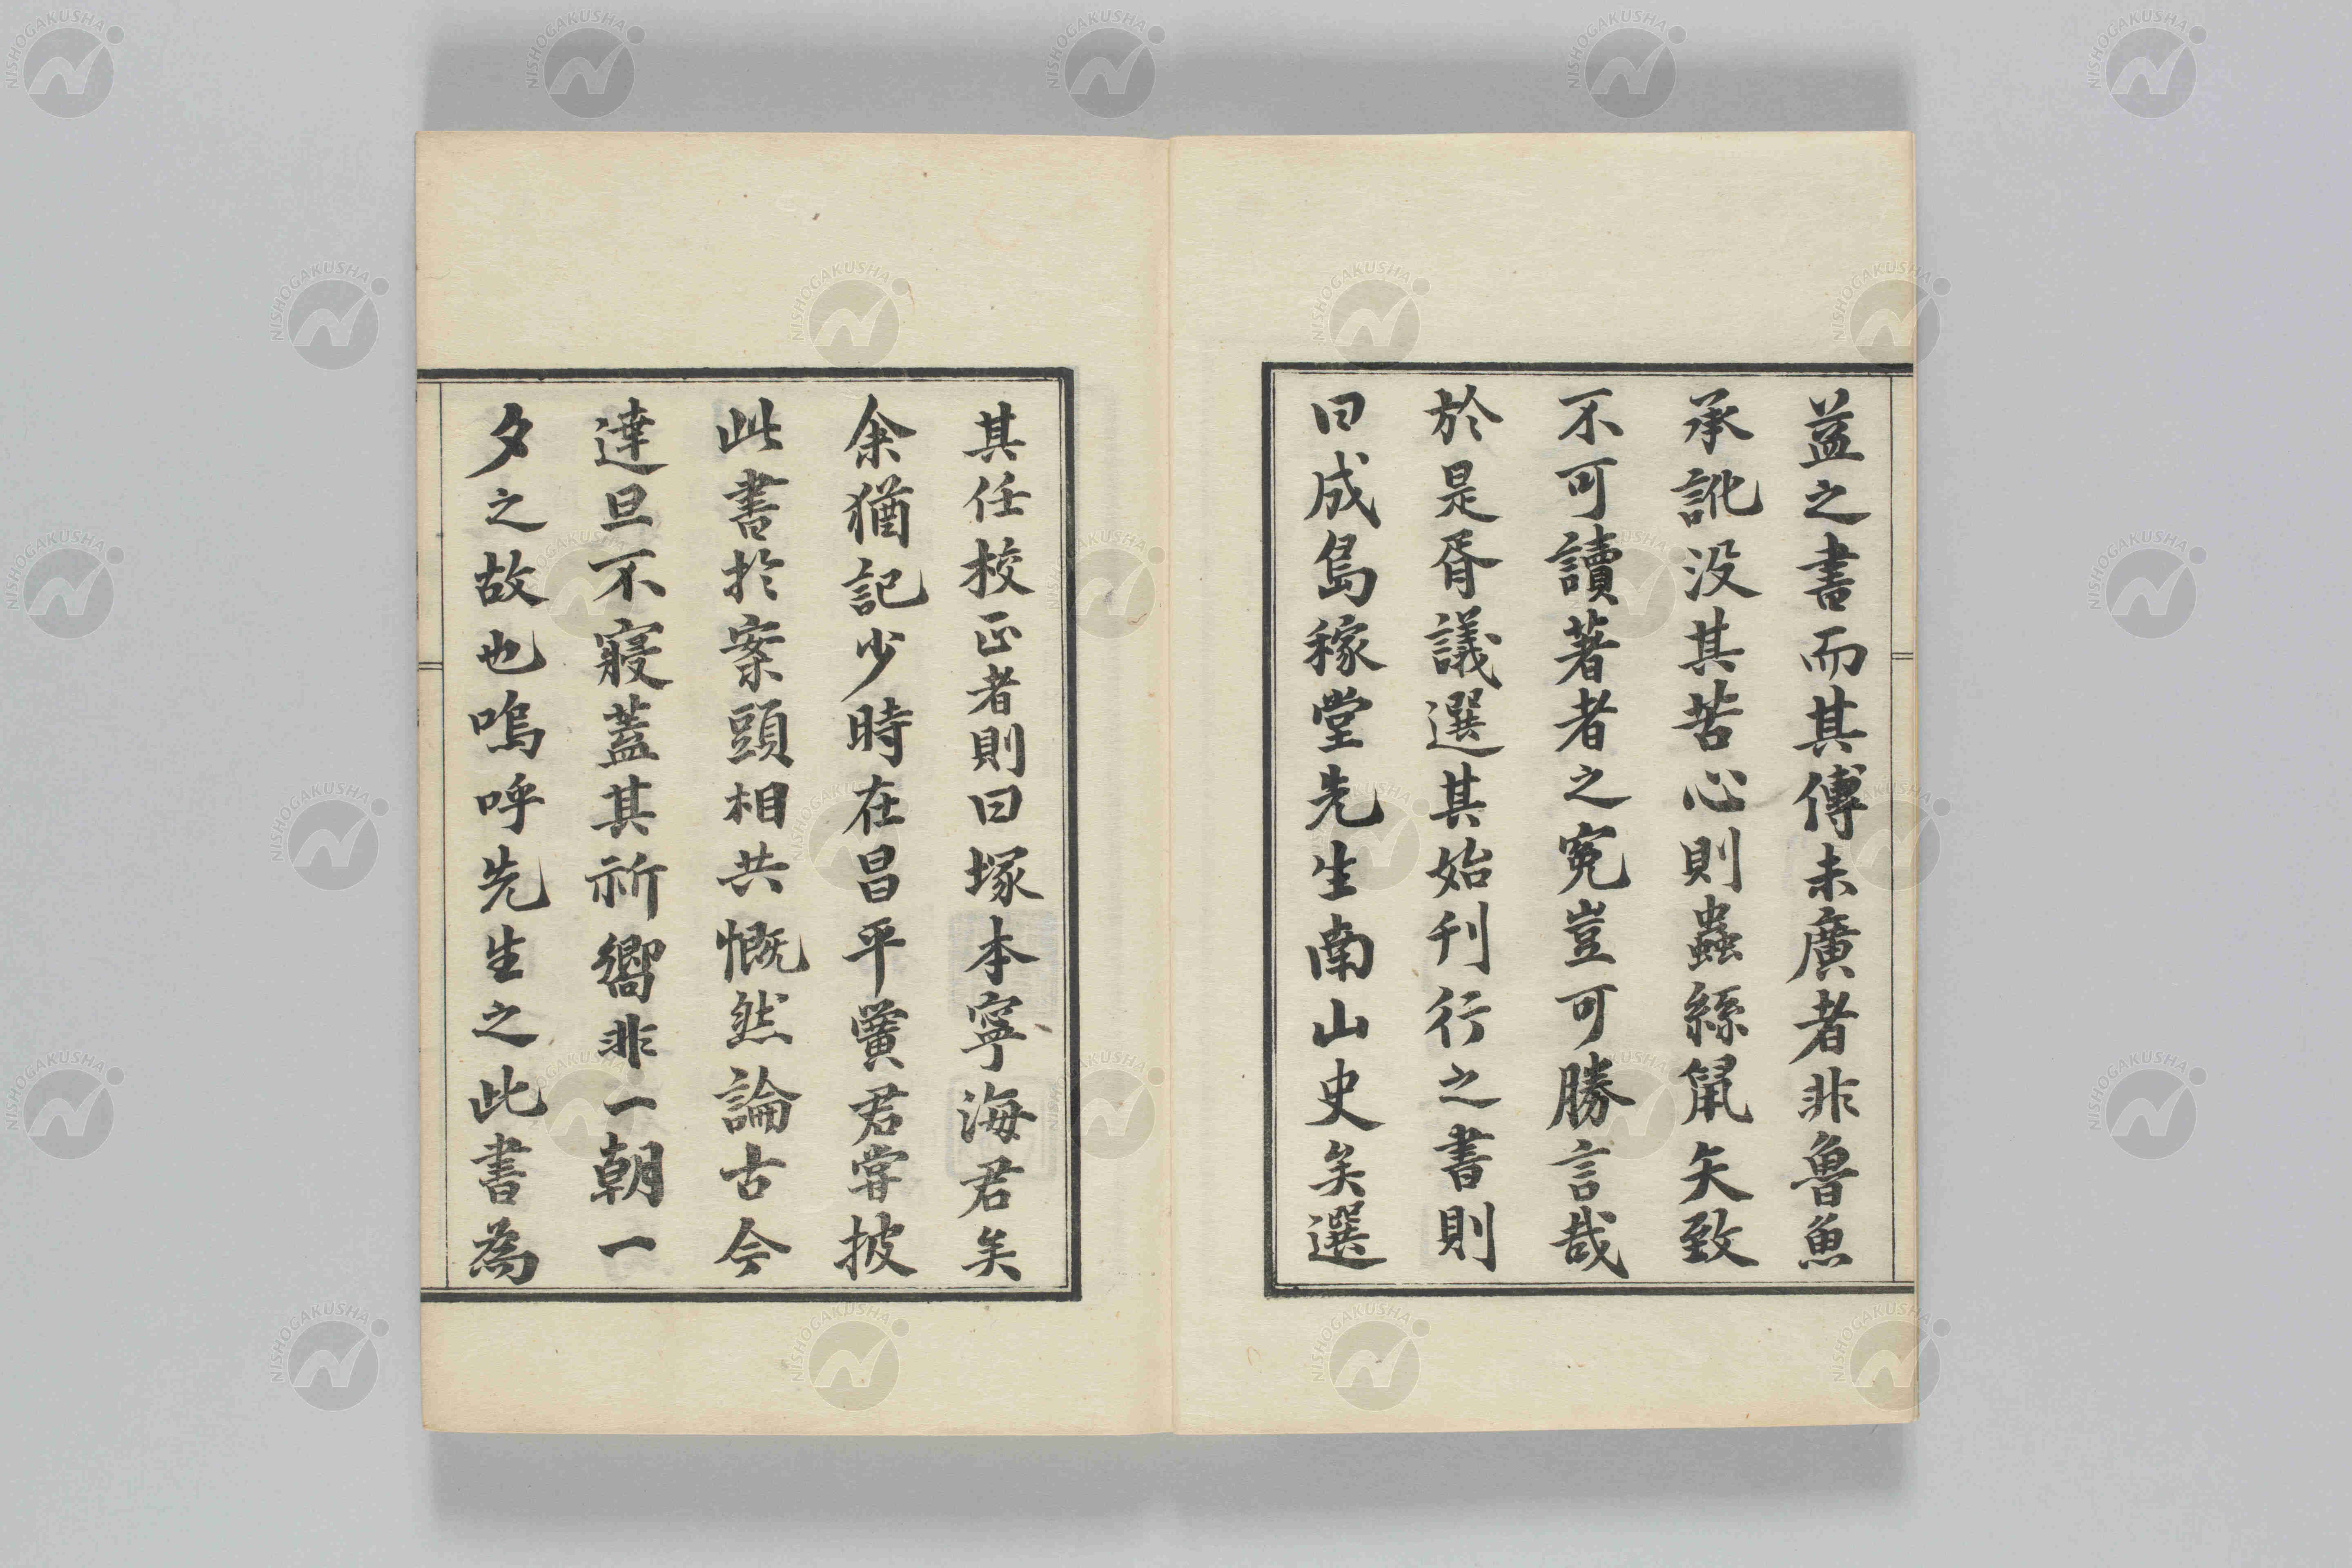 益之書而其傳未廣者非魯魚
承訛没其苦心則蟲絲鼠矢致
不可讀著者之寃豈可勝言哉
於是胥議選其始刊行之書則
曰成島稼堂先生南山史矣選
其任校正者則曰塚本寧海君矣
余猶記少時在昌平黌君甞披
此書於案頭相共慨然論古今
達旦不寢蓋其祈嚮非一朝一
夕之故也嗚呼先生之此書為
NISHOGAKUSHA